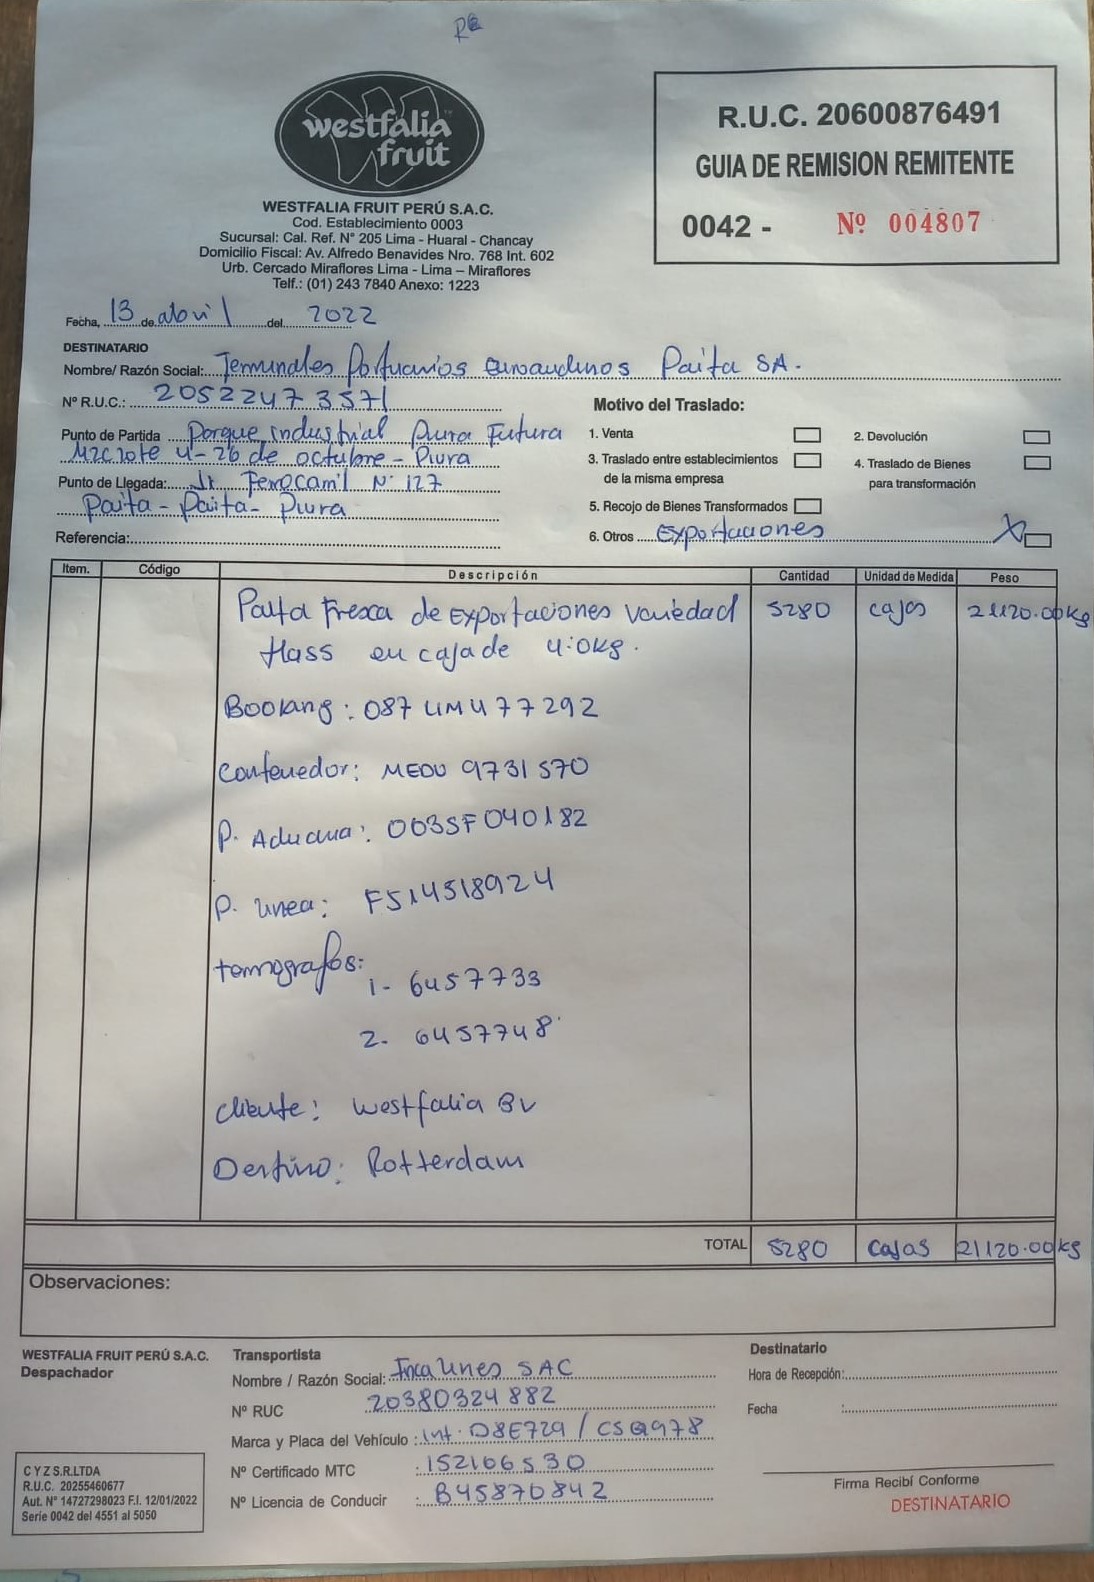 westfalia
fruit
WESTFALIA FRUIT PERÚ S.A.C.
Cod. Establecimiento 0003
Sucursal: Cal. Ref. N° 205 Lima - Huaral - Chancay
Domicilio Fiscal: Av. Alfredo Benavides Nro. 768 Int. 602
Urb. Cercado Miraflores Lima - Lima – Miraflores
Telf.: (01) 243 7840 Anexo: 1223
R.U.C. 20600876491
GUIA DE REMISION REMITENTE
0042 - Nº 004807
Fecha, 13 de abril del 2022
DESTINATARIO
Nombre/ Razón Social: Terminales Portuarios Euroandinos Paita SA.
Nº R.U.C.: 20522473571
Punto de Partida Parque industrial Piura Futura
Mz C lote 4 - 26 de octubre - Piura
Punto de Llegada: Jr. Ferrocarril N° 127
Paita - Paita - Piura
Referencia:
Motivo del Traslado:
1. Venta
2. Devolución
3. Traslado entre establecimientos
de la misma empresa
4. Traslado de Bienes
para transformación
5. Recojo de Bienes Transformados
6. Otros Exportaciones X
Item. Código Descripción Cantidad Unidad de Medida Peso
Palta Fresca de Exportaciones variedad 5280 cajas 21120.00kg
Hass en caja de 4.0kg.
Booking: 087UMU477292
Contenedor: MEDU 9731570
P. Aduana: 003SF040182
P. Linea: FS14518924
termografos:
1- 6457733
2. 6457748
cliente: Westfalia BV
Destino: Rotterdam
TOTAL 5280 cajas 21120.00kg
Observaciones:
WESTFALIA FRUIT PERÚ S.A.C.
Despachador
Transportista
Nombre / Razón Social: Inca Lines SAC
Nº RUC 20380324882
Marca y Placa del Vehículo : Int. D8E729 / CSQ978
Nº Certificado MTC : 152106530
Nº Licencia de Conducir : B45870842
Destinatario
Hora de Recepción:
Fecha :
Firma Recibí Conforme
DESTINATARIO
C Y Z S.R.LTDA
R.U.C. 20255460677
Aut. N° 14727298023 F.I. 12/01/2022
Serie 0042 del 4551 al 5050